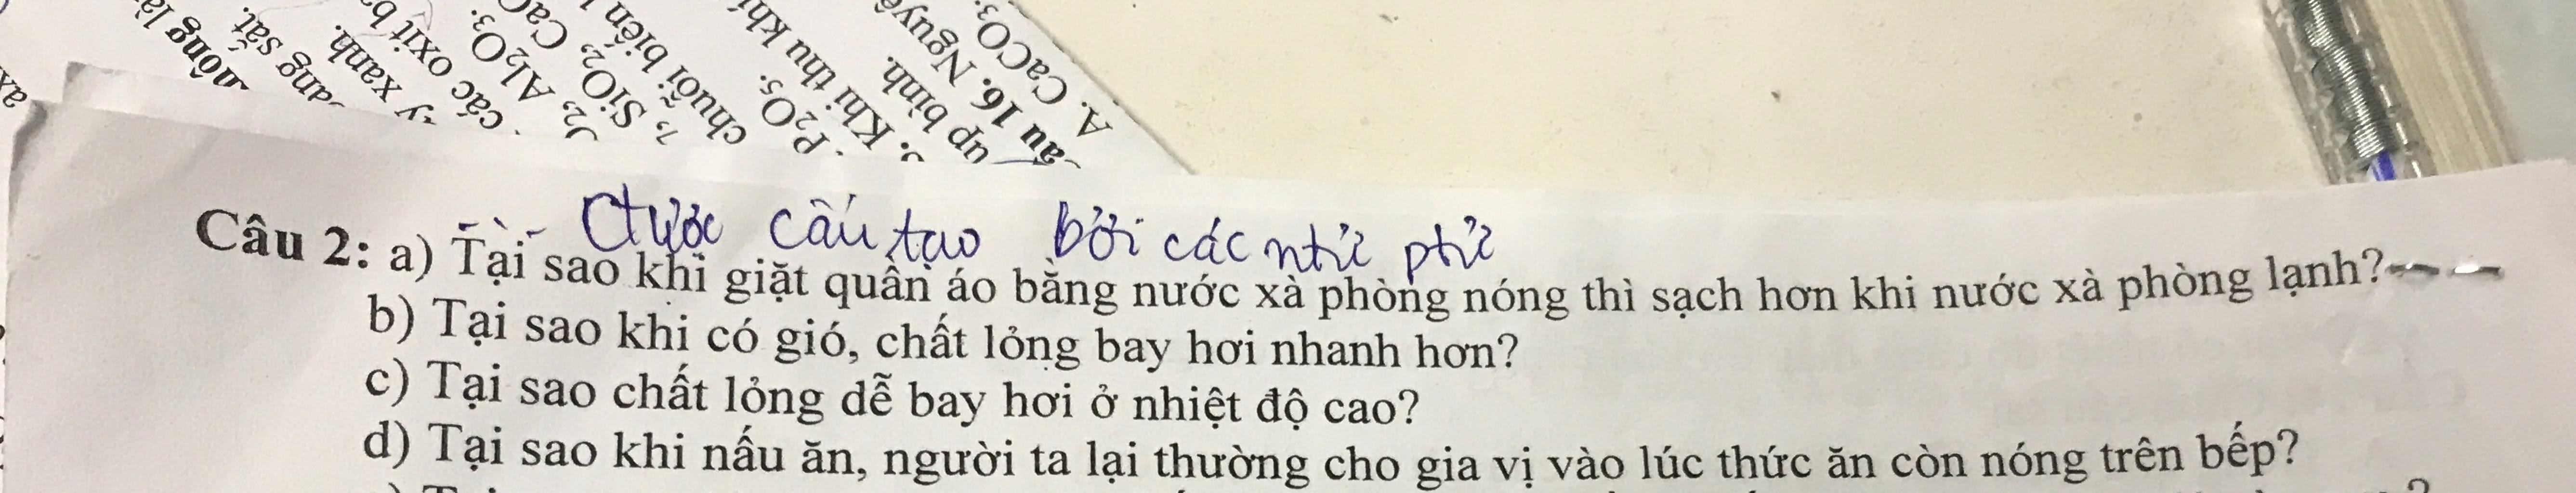 nông là
ang sắt.
y xanh.
các oxit b
Al₂O₃.
SiO₂, CaO
chuỗi biến
P₂O₅.
Khi thu khí
úp bình.
âu 16. Nguyê
A. CaCO₃.
được cấu tạo bởi các nthử phử
Câu 2: a) Tại sao khi giặt quần áo bằng nước xà phòng nóng thì sạch hơn khi nước xà phòng lạnh?
b) Tại sao khi có gió, chất lỏng bay hơi nhanh hơn?
c) Tại sao chất lỏng dễ bay hơi ở nhiệt độ cao?
d) Tại sao khi nấu ăn, người ta lại thường cho gia vị vào lúc thức ăn còn nóng trên bếp?